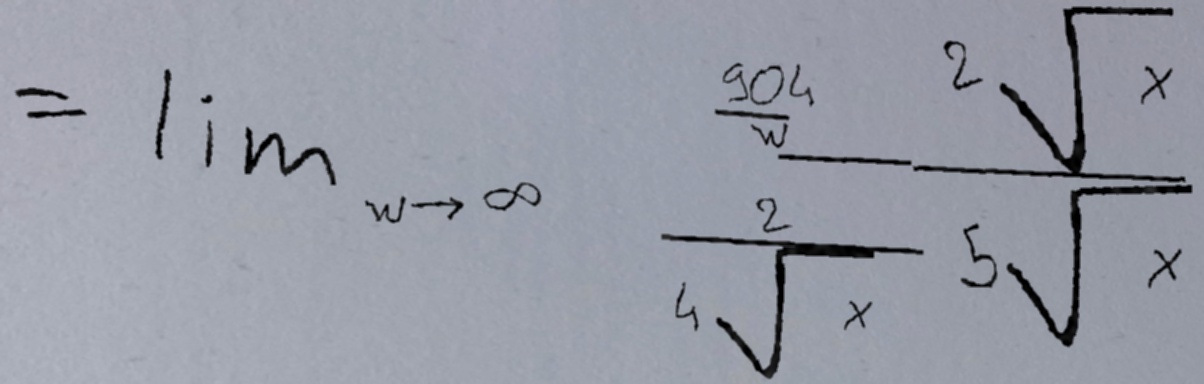 = lim_{w→∞} \frac{\frac{904}{w}}{\frac{2}{4\sqrt{x}}} \frac{2\sqrt{x}}{5\sqrt{x}}